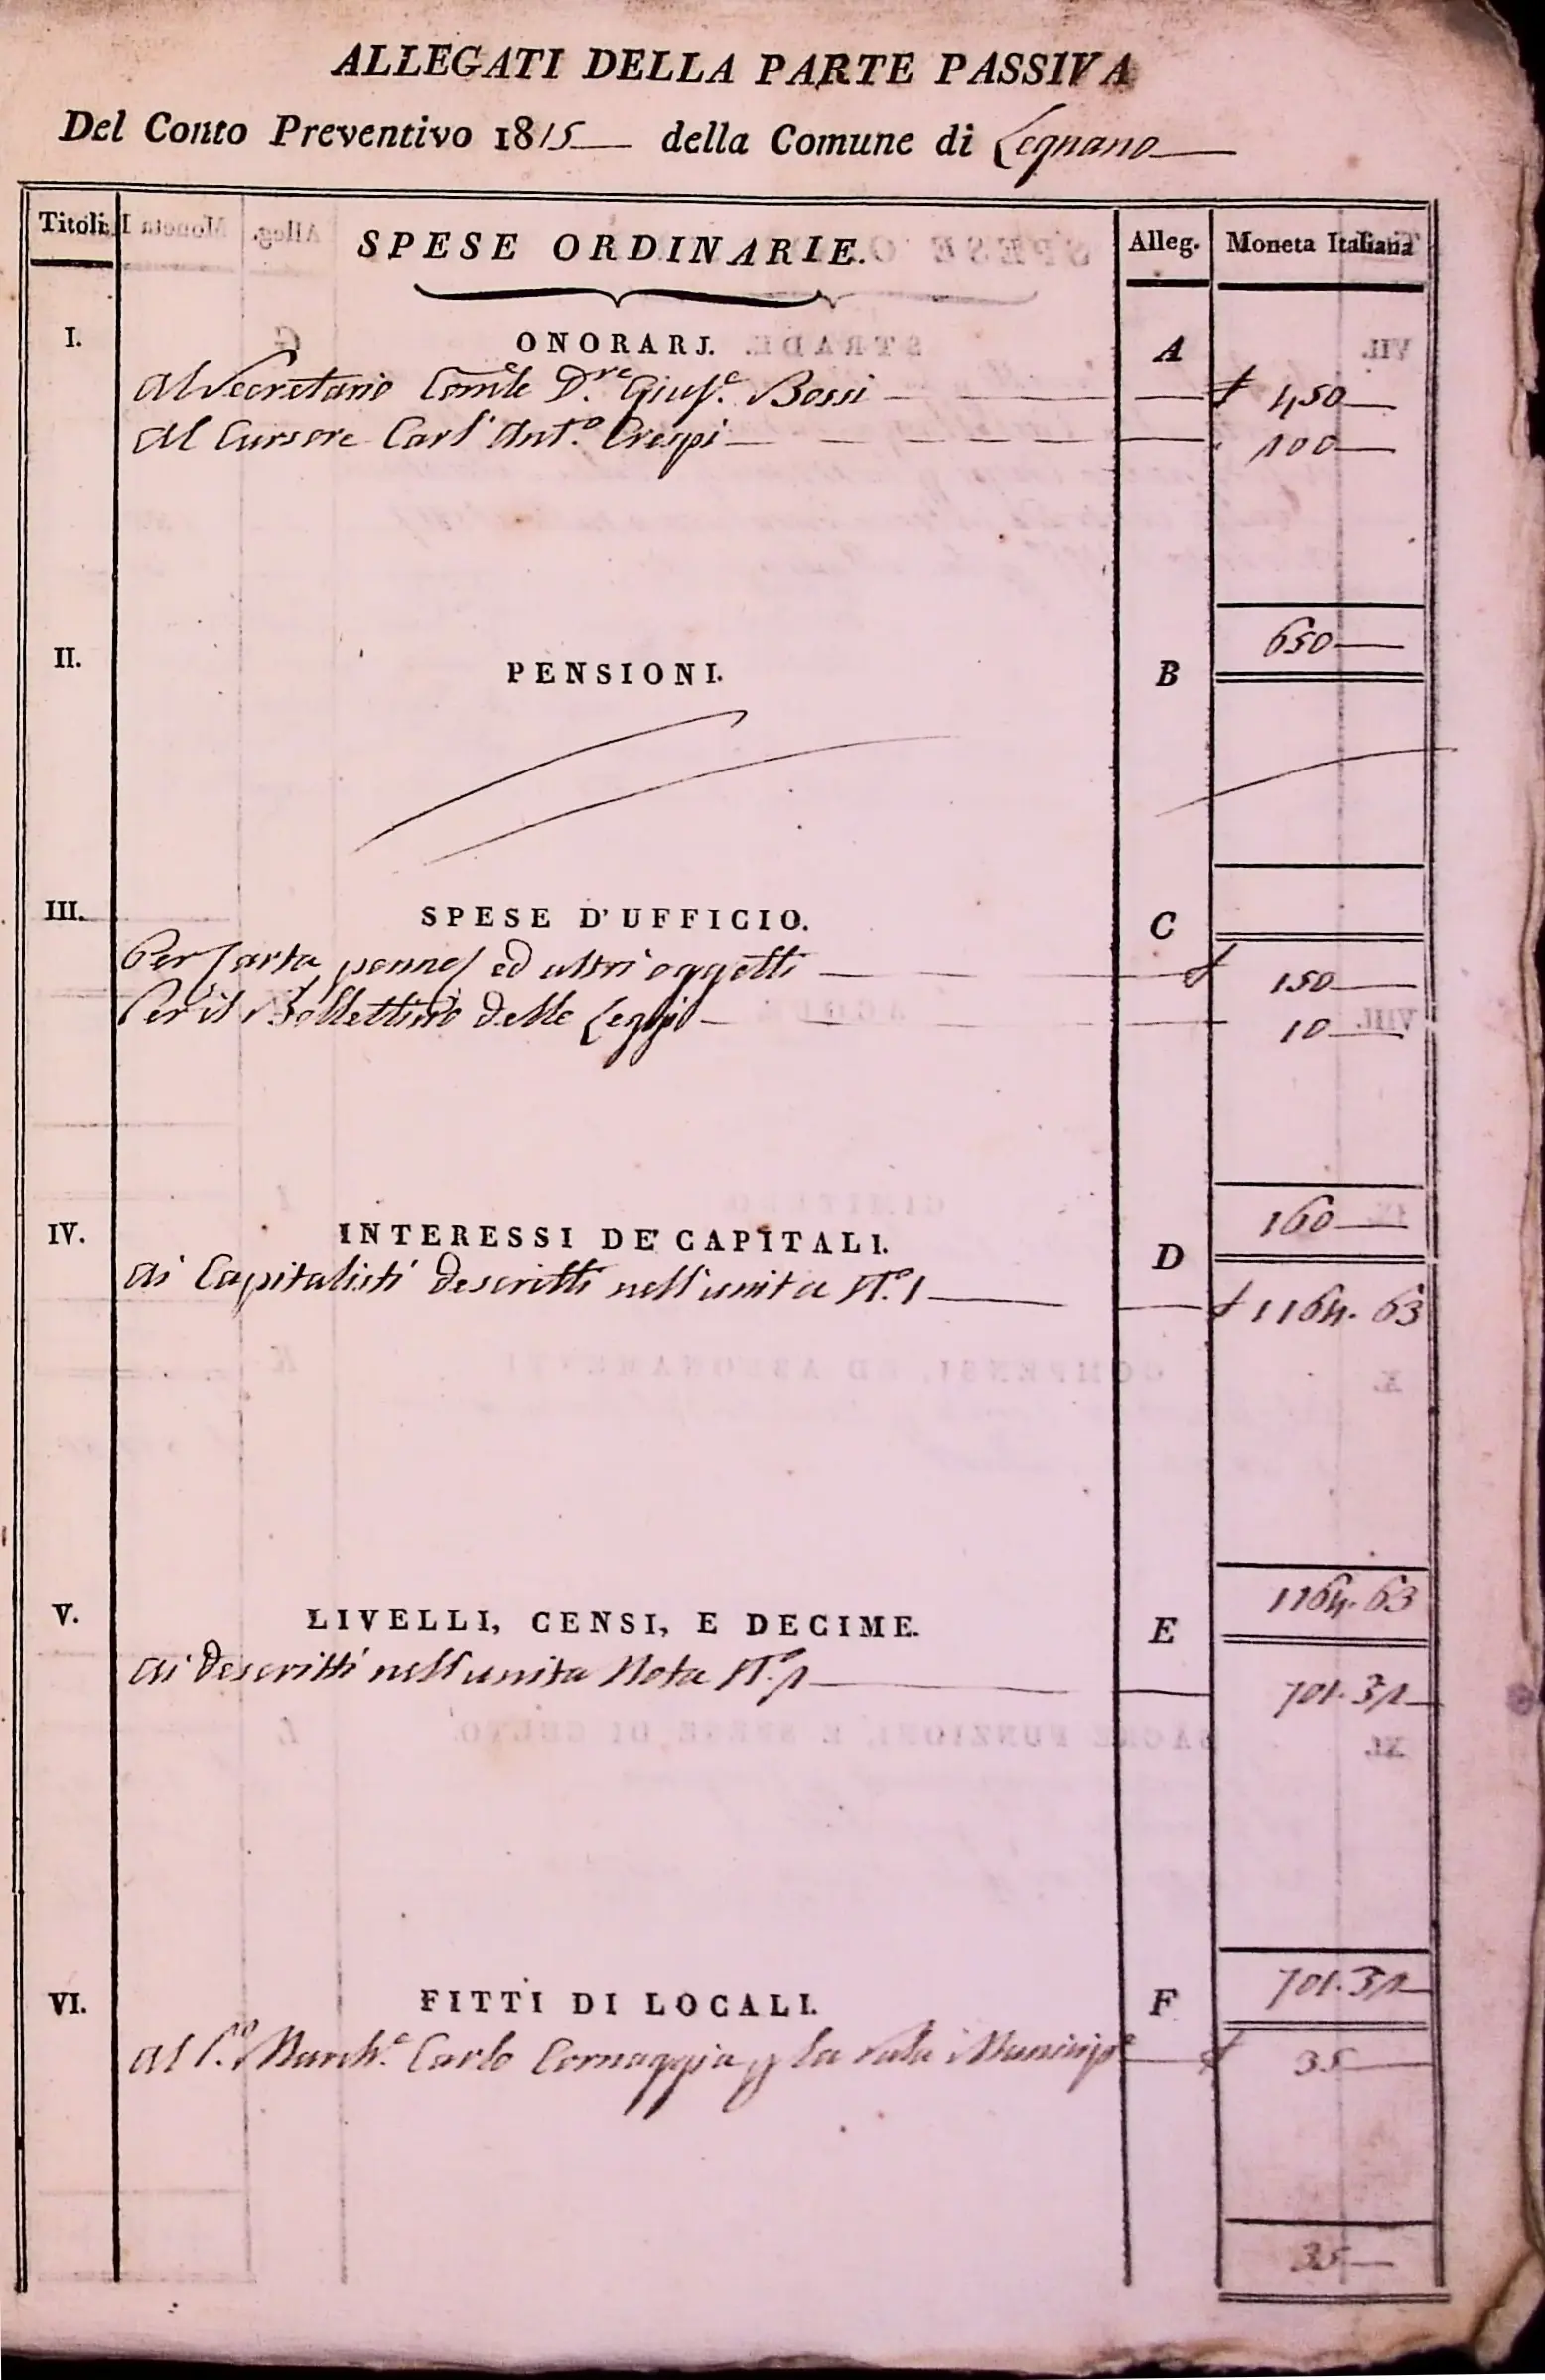 ALLEGATI DELLA PARTE PASSIVA
Del Conto Preventivo 1815 della Comune di Legnano
Titoli. SPESE ORDINARIE. Alleg. Moneta Italiana
I. ONORARJ. A
Al Secretario Comle Dre Giuse Bossi 450
Al Cursore Carl' Anto Crespi 100
650
II. PENSIONI. B
III. SPESE D'UFFICIO. C
Per Carta penne ed altri oggetti 150
Per il Bollettino delle Leggi 10
160
IV. INTERESSI DE' CAPITALI. D
Ai Capitalisti descritti nell'unita No. 1 1164. 63
1164. 63
V. LIVELLI, CENSI, E DECIME. E
Ai descritti nell'unita Nota No. 1 701. 31
701. 31
VI. FITTI DI LOCALI. F
Al Marche Carlo Cornaggia la Sala Municipe 35
35